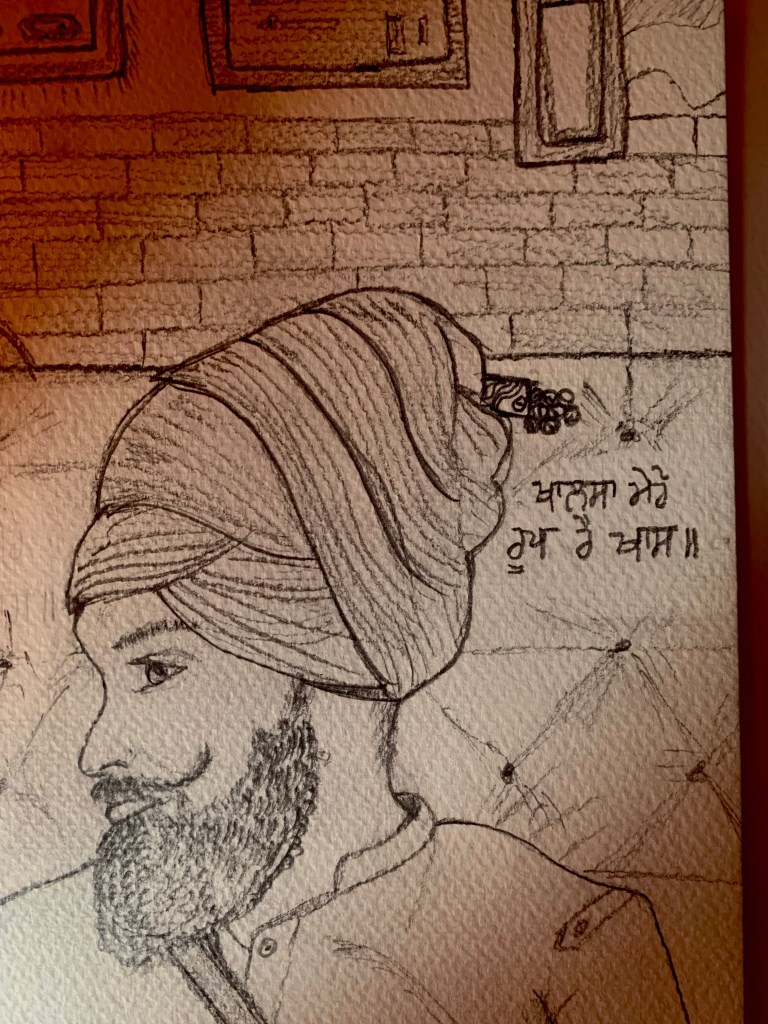 ਖਾਲਸਾ ਮੇਰੋ
ਰੂਪ ਹੈ ਖਾਸ॥